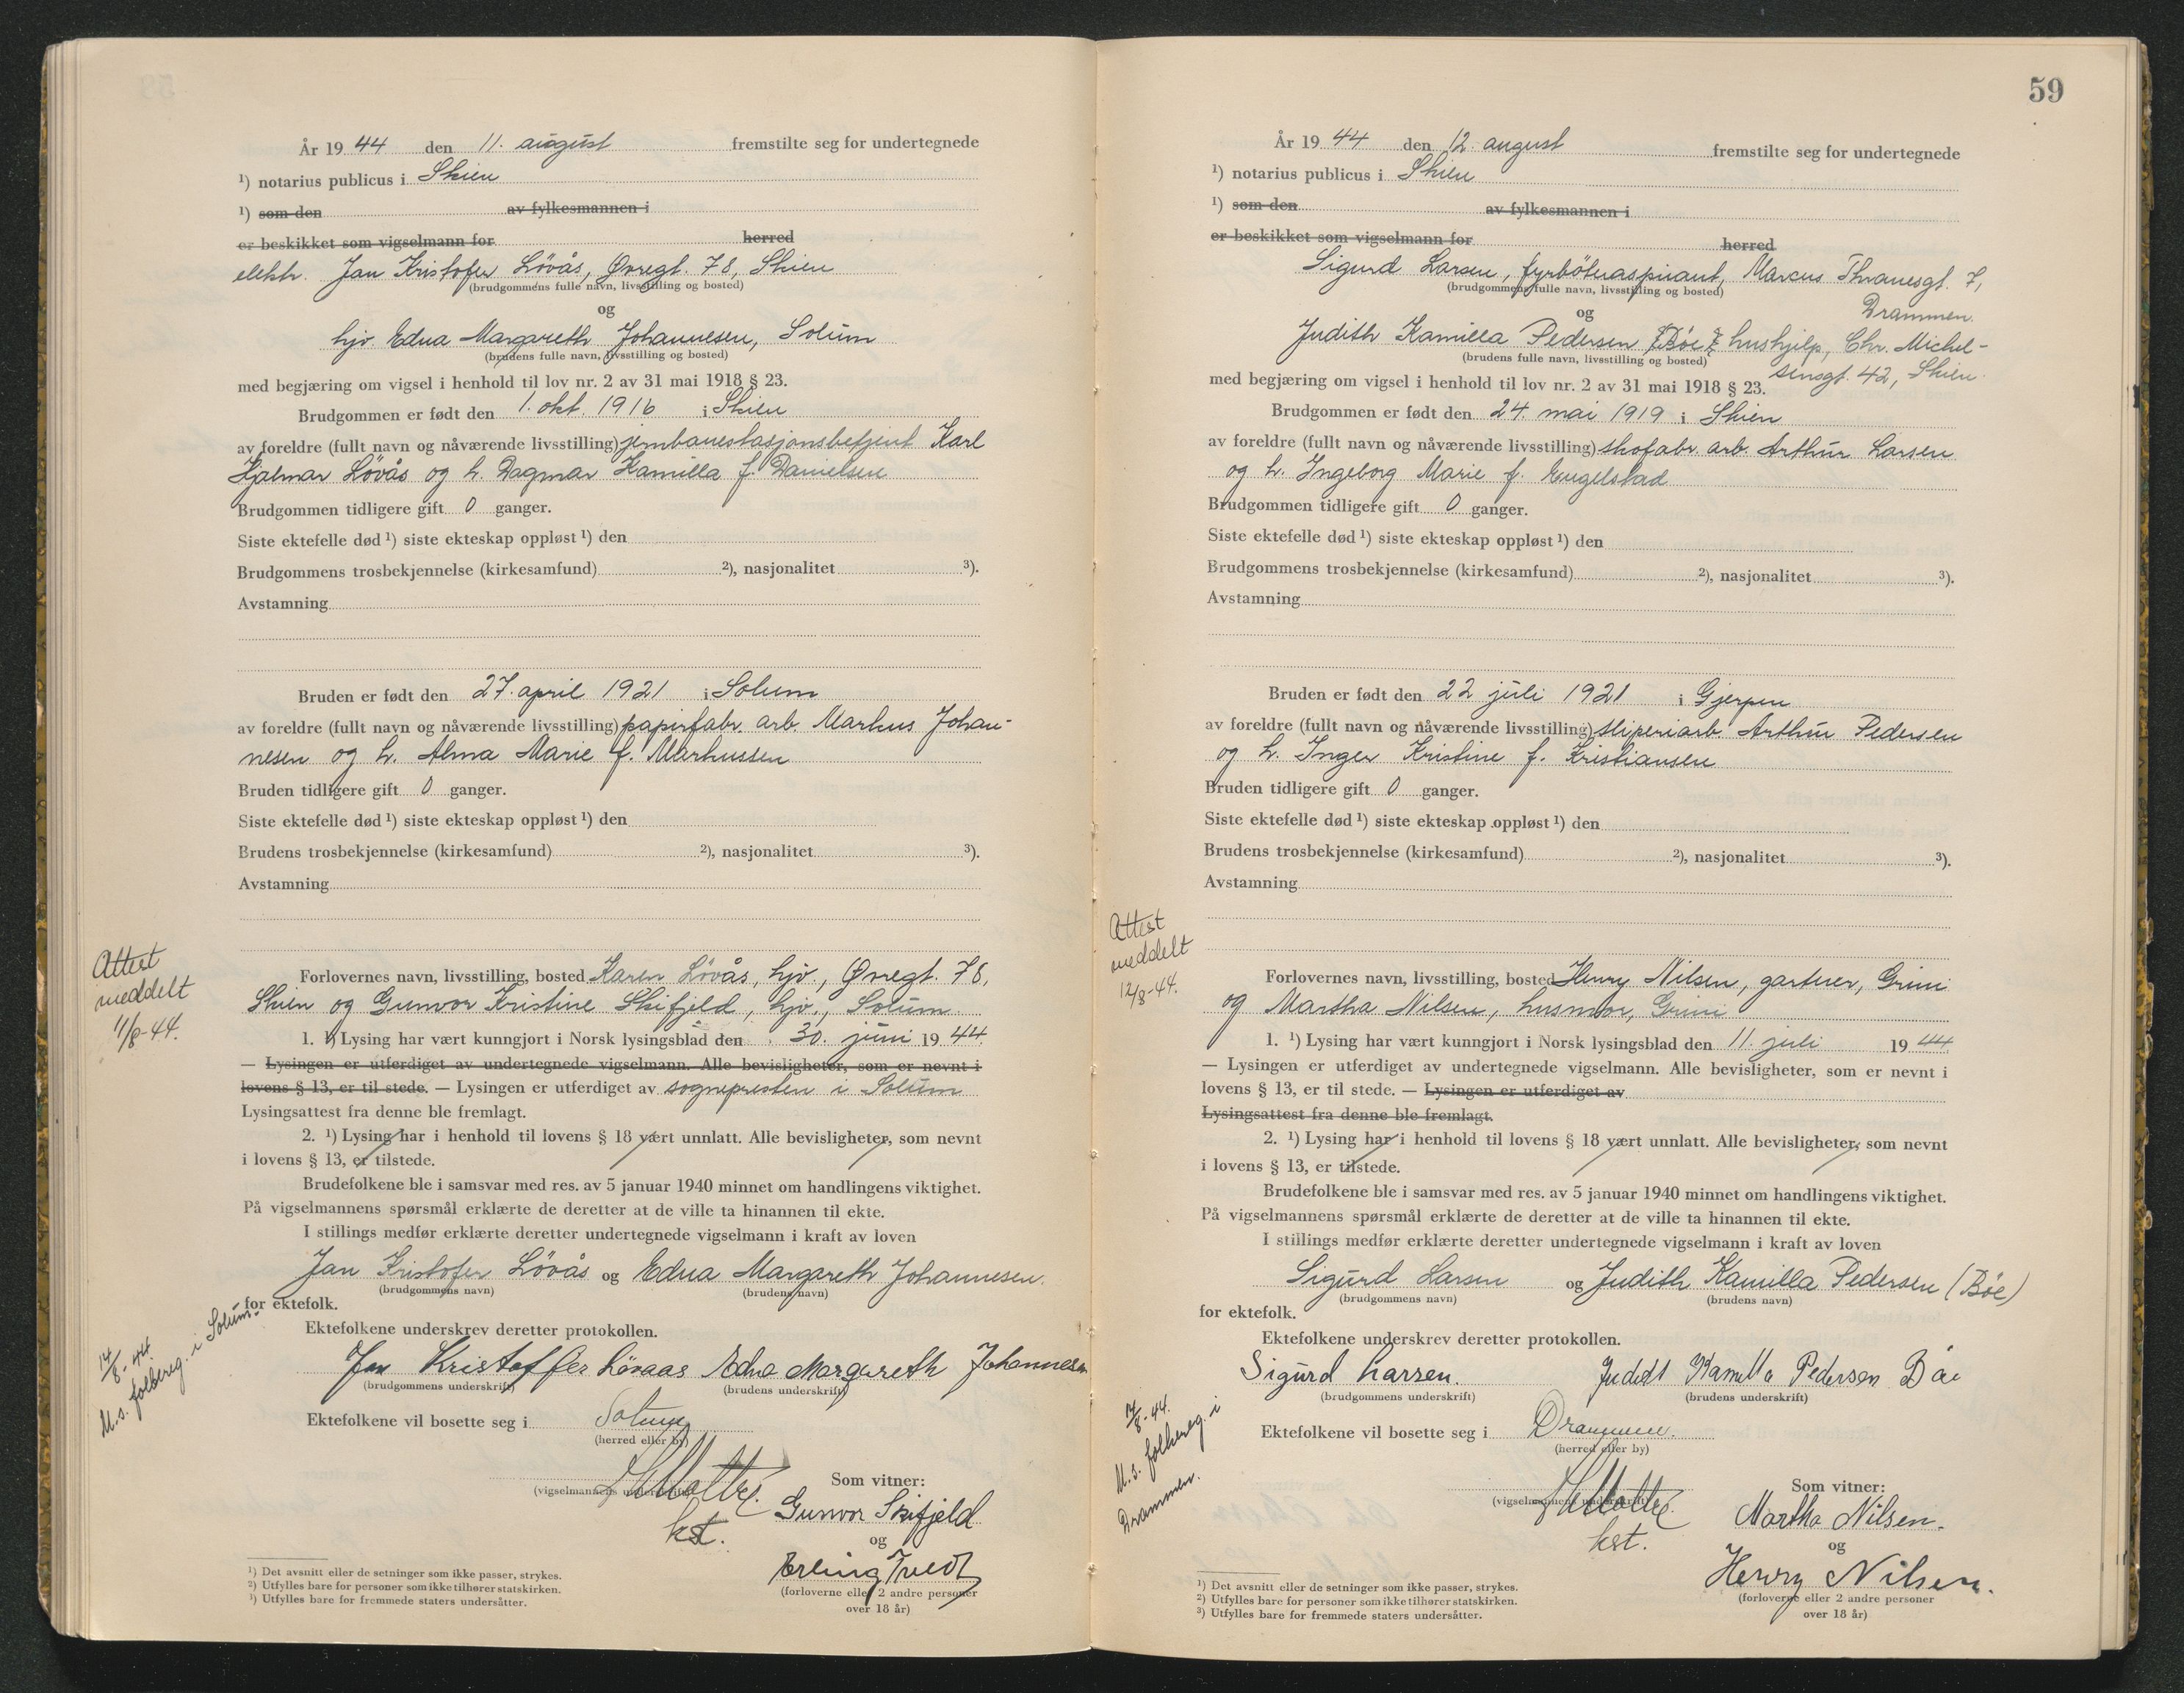 År 19 44 den 11. august fremstilte seg for undertegnede
¹) notarius publicus i Skien
¹) som den av fylkesmannen i
er beskikket som vigselmann for herred
elektr. Jan Kristofer Løvås, Øvregt. 78, Skien
(brudgommens fulle navn, livsstilling og bosted)
og
hjv Edna Margareth Johannesen, Solum
(brudens fulle navn, livsstilling og bosted)
med begjæring om vigsel i henhold til lov nr. 2 av 31 mai 1918 § 23.
Brudgommen er født den 1. okt. 1916 i Skien
av foreldre (fullt navn og nåværende livsstilling) jernbanestasjonsbetjent Karl
Hjalmar Løvås og h. Dagmar Kamilla f. Danielsen
Brudgommen tidligere gift 0 ganger.
Siste ektefelle død ¹) siste ekteskap oppløst ¹) den
Brudgommens trosbekjennelse (kirkesamfund) ²), nasjonalitet ³).
Avstamning
Bruden er født den 27. april 1921 i Solum
av foreldre (fullt navn og nåværende livsstilling) papirfabr. arb. Markus Johan-
nesen og h. Alma Marie f. Markussen
Bruden tidligere gift 0 ganger.
Siste ektefelle død ¹) siste ekteskap oppløst ¹) den
Brudens trosbekjennelse (kirkesamfund) ²), nasjonalitet ³).
Avstamning
Attest
meddelt
11/8-44.
Forlovernes navn, livsstilling, bosted Karen Løvås, hjv., Øvregt. 78,
Skien og Gunvor Kristine Skifjeld, hjv., Solum.
1. ¹) Lysing har vært kunngjort i Norsk lysingsblad den 30. juni 19 44.
— Lysingen er utferdiget av undertegnede vigselmann. Alle bevisligheter, som er nevnt i
lovens § 13, er til stede. — Lysingen er utferdiget av sognepresten i Solum
Lysingsattest fra denne ble fremlagt.
2. ¹) Lysing har i henhold til lovens § 18 vært unnlatt. Alle bevisligheter, som nevnt
i lovens § 13, er tilstede.
Brudefolkene ble i samsvar med res. av 5 januar 1940 minnet om handlingens viktighet.
På vigselmannens spørsmål erklærte de deretter at de ville ta hinannen til ekte.
I stillings medfør erklærte deretter undertegnede vigselmann i kraft av loven
Jan Kristofer Løvås og Edna Margareth Johannesen.
(brudgommens navn) (brudens navn)
for ektefolk.
Ektefolkene underskrev deretter protokollen.
14/8-44
M.s. folkereg. i Solum.
Jan Kristoffer Løvaas Edna Margareth Johannesen
(brudgommens underskrift) (brudens underskrift)
Ektefolkene vil bosette seg i Solum
(herred eller by)
(vigselmannens underskrift)
kst.
Som vitner:
Gunvor Skifjeld
og
Erling Tvedt
(forloverne eller 2 andre personer
over 18 år)
¹) Det avsnitt eller de setninger som ikke passer, strykes.
²) Utfylles bare for personer som ikke tilhører statskirken.
³) Utfylles bare for fremmede staters undersåtter.
59
År 19 44 den 12. august fremstilte seg for undertegnede
¹) notarius publicus i Skien
¹) som den av fylkesmannen i
er beskikket som vigselmann for herred
Sigurd Larsen, fyrbøteraspirant, Marcus Thranesgt. 7,
(brudgommens fulle navn, livsstilling og bosted)
Drammen.
og
Judith Kamilla Pedersen (Bøe) hushjelp, Chr. Michel-
(brudens fulle navn, livsstilling og bosted)
sensgt. 42, Skien.
med begjæring om vigsel i henhold til lov nr. 2 av 31 mai 1918 § 23.
Brudgommen er født den 24. mai 1919 i Skien
av foreldre (fullt navn og nåværende livsstilling) skofabr. arb. Arthur Larsen
og h. Ingeborg Marie f. Engelstad
Brudgommen tidligere gift 0 ganger.
Siste ektefelle død ¹) siste ekteskap oppløst ¹) den
Brudgommens trosbekjennelse (kirkesamfund) ²), nasjonalitet ³).
Avstamning
Bruden er født den 22 juli 1921 i Gjerpen
av foreldre (fullt navn og nåværende livsstilling) sliperiarb. Arthur Pedersen
og h. Inger Kristine f. Kristiansen
Bruden tidligere gift 0 ganger.
Siste ektefelle død ¹) siste ekteskap oppløst ¹) den
Brudens trosbekjennelse (kirkesamfund) ²), nasjonalitet ³).
Avstamning
Attest
meddelt
12/8-44.
Forlovernes navn, livsstilling, bosted Henry Nilsen, gartner, Grini
og Martha Nilsen, husmor, Grini
1. ¹) Lysing har vært kunngjort i Norsk lysingsblad den 11. juli 19 44
— Lysingen er utferdiget av undertegnede vigselmann. Alle bevisligheter, som er nevnt i
lovens § 13, er til stede. — Lysingen er utferdiget av
Lysingsattest fra denne ble fremlagt.
2. ¹) Lysing har i henhold til lovens § 18 vært unnlatt. Alle bevisligheter, som nevnt
i lovens § 13, er tilstede.
Brudefolkene ble i samsvar med res. av 5 januar 1940 minnet om handlingens viktighet.
På vigselmannens spørsmål erklærte de deretter at de ville ta hinannen til ekte.
I stillings medfør erklærte deretter undertegnede vigselmann i kraft av loven
Sigurd Larsen og Judith Kamilla Pedersen (Bøe)
(brudgommens navn) (brudens navn)
for ektefolk.
Ektefolkene underskrev deretter protokollen.
Sigurd Larsen. Judith Kamilla Pedersen Bøe
(brudgommens underskrift) (brudens underskrift)
14/8-44.
M.s. folkereg. i
Drammen.
Ektefolkene vil bosette seg i Drammen.
(herred eller by)
(vigselmannens underskrift)
kst.
Som vitner:
Martha Nilsen.
og
Henry Nilsen.
(forloverne eller 2 andre personer
over 18 år)
¹) Det avsnitt eller de setninger som ikke passer, strykes.
²) Utfylles bare for personer som ikke tilhører statskirken.
³) Utfylles bare for fremmede staters undersåtter.